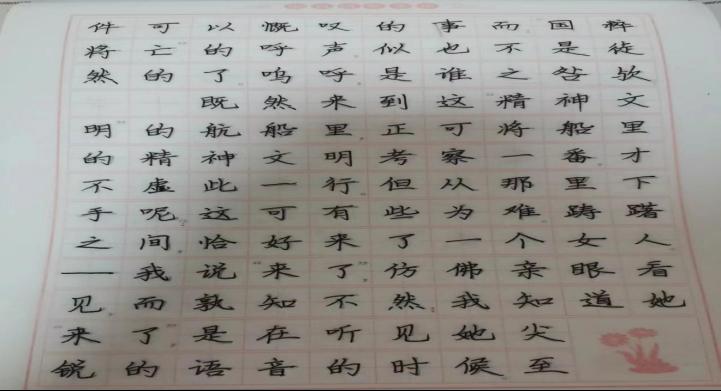 件可以慨叹的事而国粹
将亡的呼声似也不是徒
然的了呜呼是谁之咎欤
既然来到这“精神文
明”的航船里正可将船里
的精神文明考察一番才
不虚此一行但从那里下
手呢。这可有些为难踌躇
之间恰好来了一个女人
——我说“来了”仿佛亲眼看
见而孰知不然我知道她
“来了”是在听见她尖
锐的语音的时候至